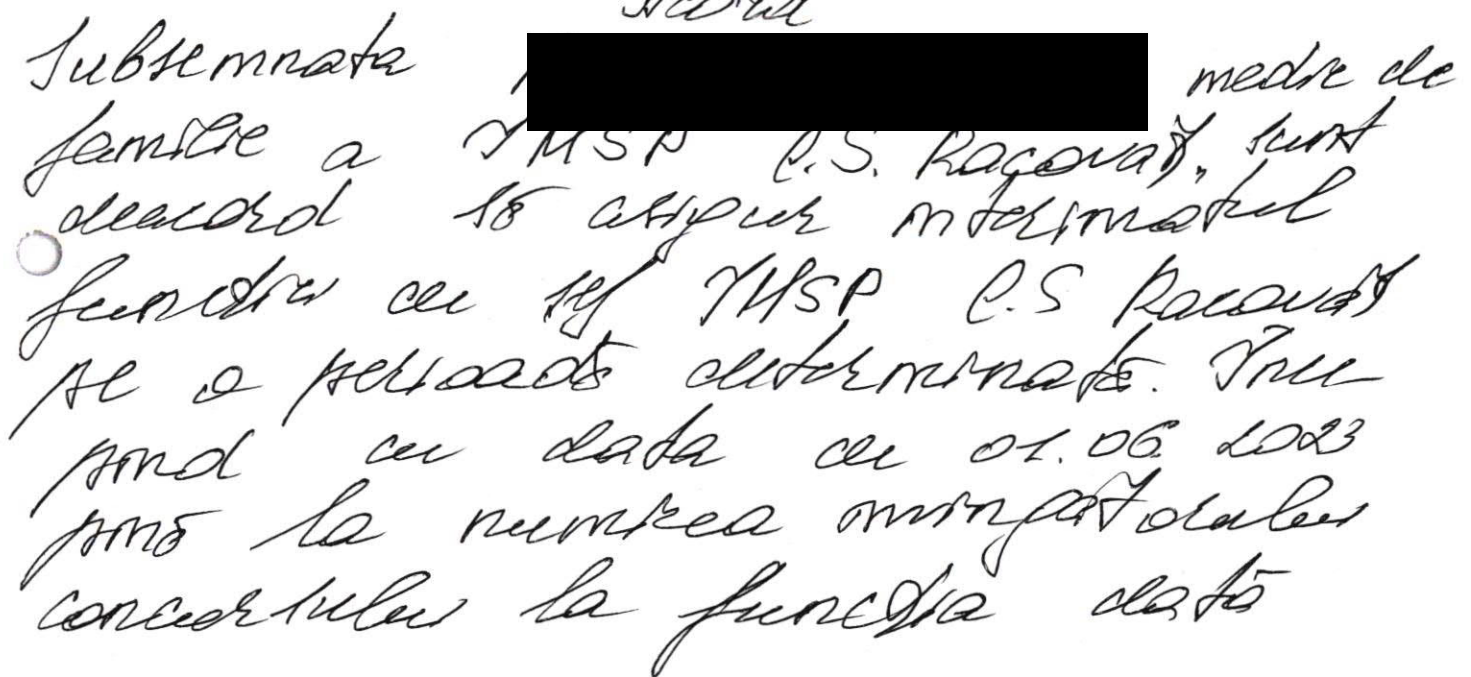 Acord
Subsemnata medic de
familie a IMSP C.S. Racovăț, sunt
deacord să asigur interimatul
funcției de șef IMSP C.S Racovăț
pe o perioadă determinată. Înce
pînd cu data de 01.06 2023
pînă la numirea învingătorului
concursului la funcția dată